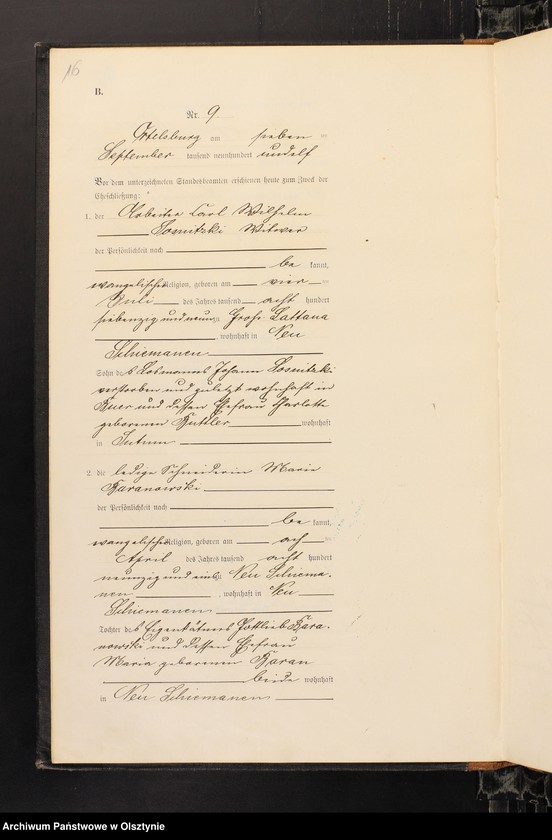 16
B.
Nr. 9
Ortelsburg am sieben
September tausend neunhundert undelf
Vor dem unterzeichneten Standesbeamten erschienen heute zum Zweck der
Eheschließung:
1. der Arbeiter Carl Wilhelm
Losnitzki Witwer
der Persönlichkeit nach
be kannt,
evangelischer Religion, geboren am vier
Juli des Jahres tausend acht hundert
siebenzig und neun zu Groß Lattana
, wohnhaft in Neu
Schiemanen
Sohn des Losmanns Johann Losnitzki
verstorben und zuletzt wohnhaft in
Buer und dessen Ehefrau Charlotte
geborenen wohnhaft
in Sutum
2. die ledige Schneiderin Marie
Baranowski
der Persönlichkeit nach
be kannt,
evangelischer Religion, geboren am ach
April des Jahres tausend acht hundert
neunzig und eins zu Neu Schiema-
nen , wohnhaft in Neu
Schiemanen
Tochter des Eigentümers Gottlieb Bara-
nowski und dessen Ehefrau
Maria geborenen Baran
beide wohnhaft
in Neu Schiemanen
Archiwum Państwowe w Olsztynie